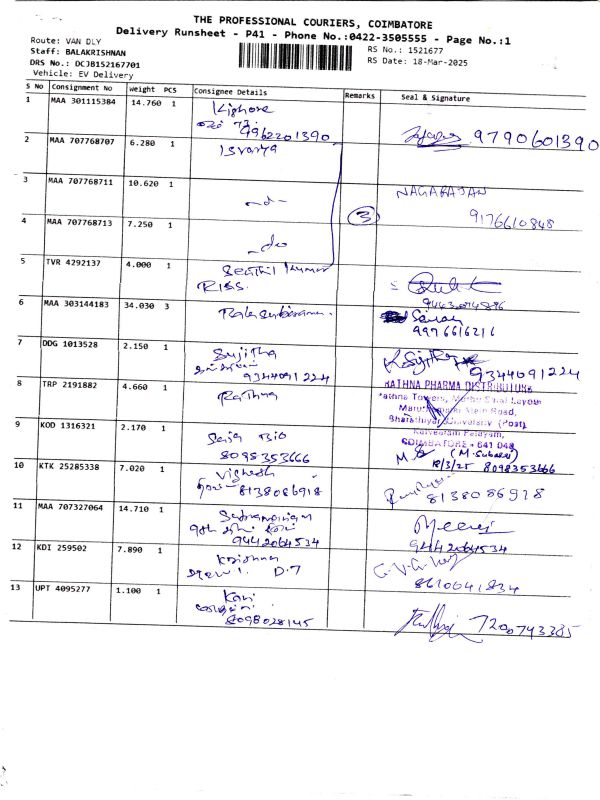 THE PROFESSIONAL COURIERS, COIMBATORE
Delivery Runsheet - P41 - Phone No.:0422-3505555 - Page No.:1
Route: VAN DLY
Staff: BALAKRISHNAN
DRS No.: DCJB152167701
Vehicle: EV Delivery
RS No.: 1521677
RS Date: 18-Mar-2025
S No Consignment No Weight PCS Consignee Details Remarks Seal & Signature
1 MAA 301115384 14.760 1 Kishore
9962201390 9790601390
2 MAA 707768707 6.280 1 Iswarya
3 MAA 707768711 10.620 1 -do- NAGARAJAN
3 9176610848
4 MAA 707768713 7.250 1 -do-
5 TVR 4292137 4.000 1 Senthil kumar
6 MAA 303144183 34.030 3
9976616216
7 DDG 1013528 2.150 1 Sujitha
9344091224 9344091224
8 TRP 2191882 4.660 1 Rathna
RATHNA PHARMA DISTRIBUTORS
Bharathiyar University (Post),
COIMBATORE - 641 046
9 KOD 1316321 2.170 1 Bio (M. Subasri)
8098353666 18/3/25 8098353666
10 KTK 25285338 7.020 1 Vighesh
8138086918 8138086918
11 MAA 707327064 14.710 1
9442064534 9442064534
12 KDI 259502 7.890 1 Krishna
D.7
13 UPT 4095277 1.100 1 Kani
8098028145 7200743385